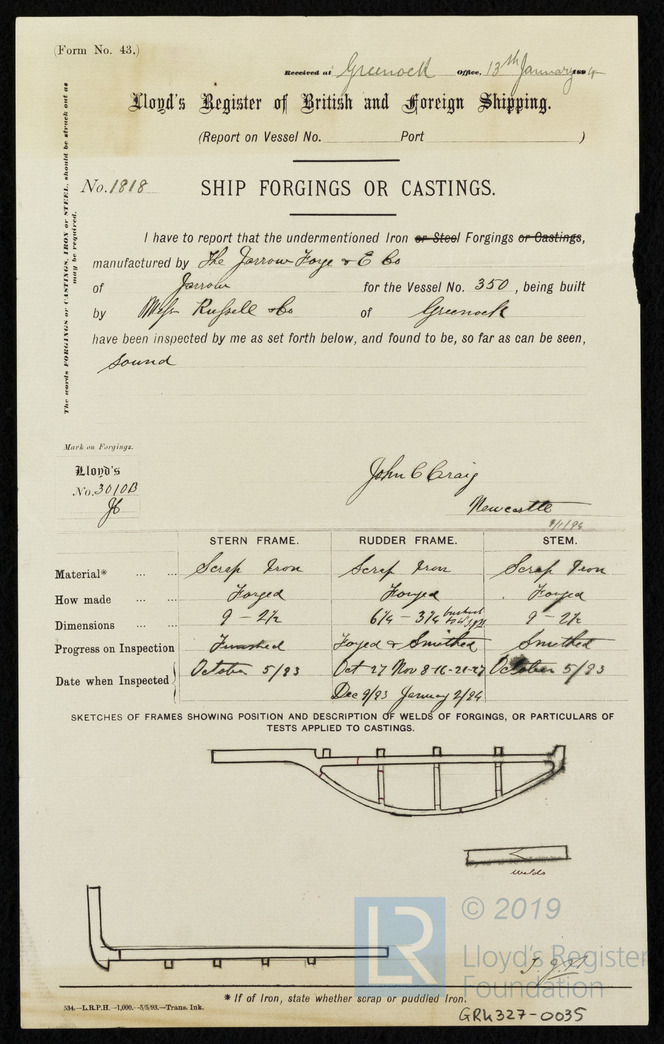 (Form No. 43.)
Received at Greenock Office, 13th January 1894
Lloyd's Register of British and Foreign Shipping.
(Report on Vessel No. Port )
The words FORGINGS or CASTINGS, IRON or STEEL, should be struck out as may be required.
No. 1818 SHIP FORGINGS OR CASTINGS.
I have to report that the undermentioned Iron or Steel Forgings or Castings,
manufactured by The Jarrow Forge & E Co
of Jarrow for the Vessel No. 350, being built
by Messrs Russell & Co of Greenock
have been inspected by me as set forth below, and found to be, so far as can be seen,
Sound
Mark on Forgings.
Lloyd's
No. 3010B
John C Craig
Newcastle
STERN FRAME. RUDDER FRAME. STEM.
Material* ... ... Scrap Iron Scrap Iron Scrap Iron
How made ... ... Forged Forged Forged
Dimensions ... ... 9 - 2½ 6¼ - 3¼ 9 - 2½
Progress on Inspection Finished Forged & Smithed Smithed
Date when Inspected October 5/93 Oct 27 Nov 8-16-21-27 October 5/93
Dec 9/93 January 2/94
SKETCHES OF FRAMES SHOWING POSITION AND DESCRIPTION OF WELDS OF FORGINGS, OR PARTICULARS OF
TESTS APPLIED TO CASTINGS.
welds
LR
© 2019
Lloyd's Register
Foundation
* If of Iron, state whether scrap or puddled Iron.
534.—L.R.P.H.—1,000.—5/5/93.—Trans. Ink.
GRK327-0035